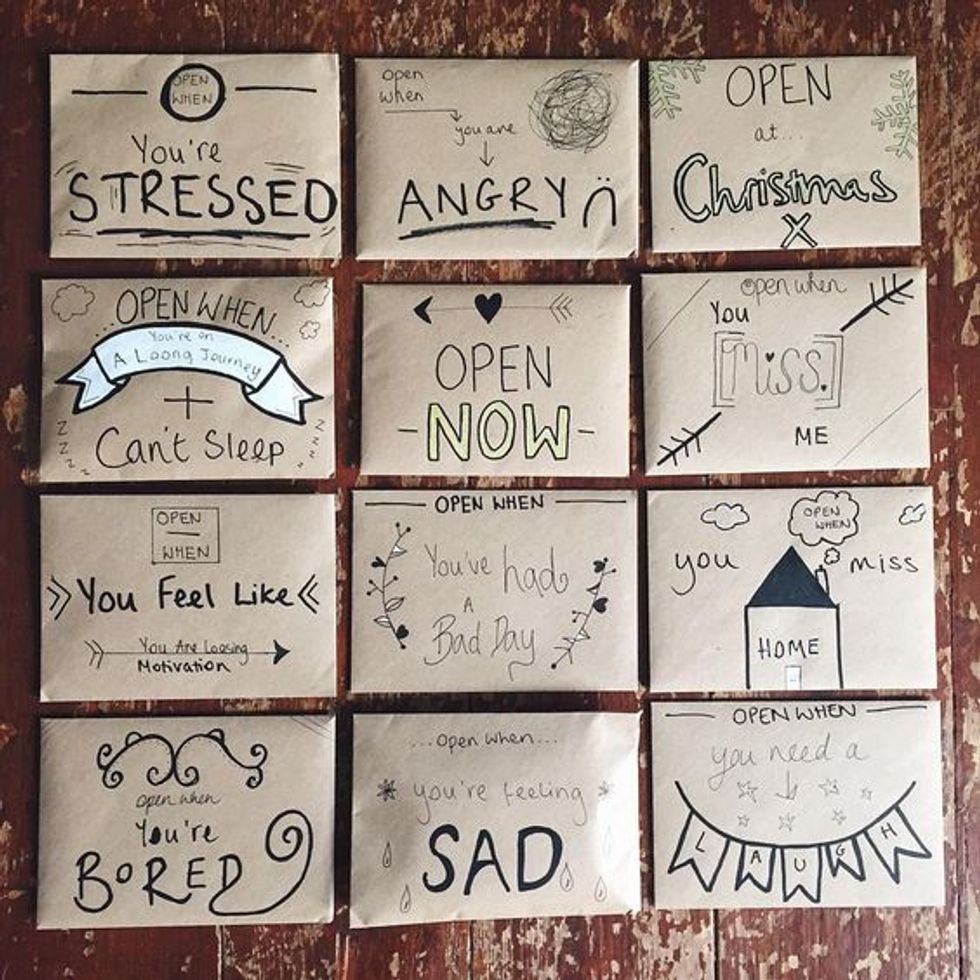 OPEN
WHEN
You're
STRESSED
Open
when
you are
ANGRY
OPEN
at...
Christmas
X
OPEN WHEN...
You're on
A Loong Journey
+
Can't Sleep
Z Z Z Z Z
Z Z Z Z Z
OPEN
-NOW-
open when
You
[Miss.]
ME
OPEN
WHEN
You Feel Like
You Are Loosing
Motivation
OPEN WHEN
You've had
A
Bad Day
OPEN
WHEN
you miss
HOME
open when
You're
BORED
...Open when...
you're feeling
SAD
OPEN WHEN
you need a
LAUGH